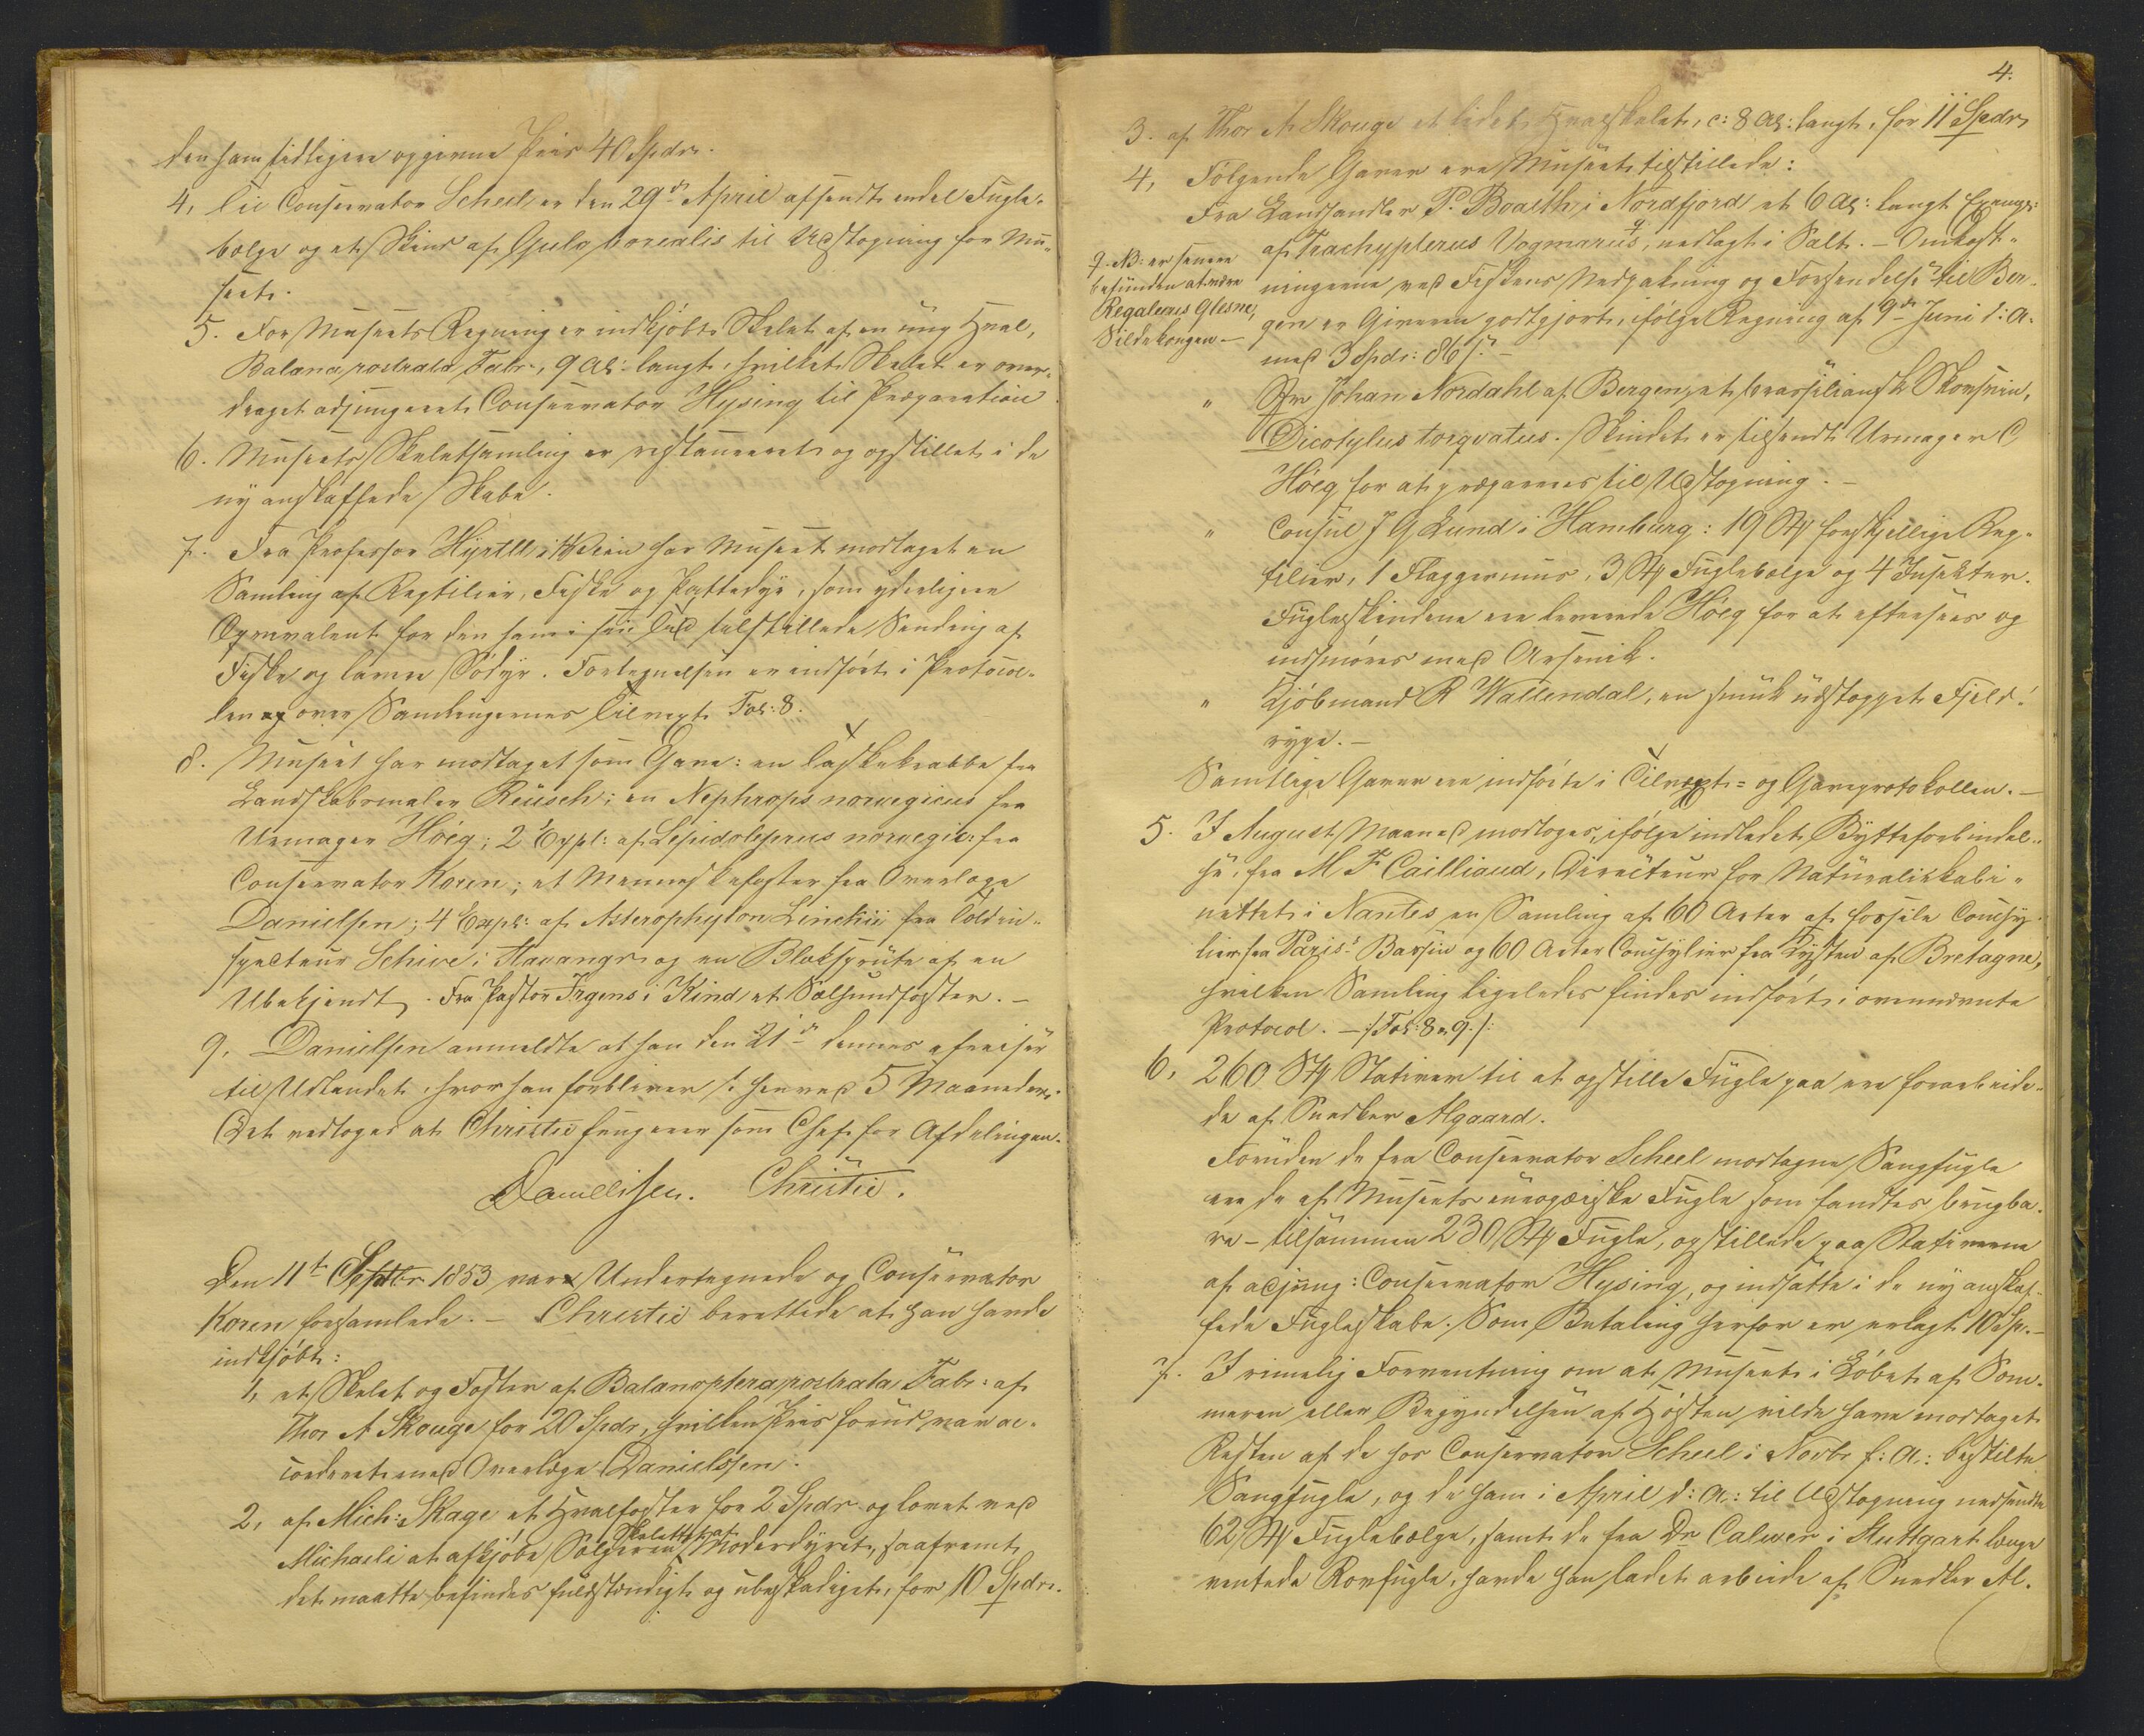 den ham tidligere opgivne Priis 40 Spdr.
4, Til Conservator Scheel er den 29de April afsendt endel Fugle-
bælge og et Skind af Gulo borealis til Udstopning for Mu-
seet.
5. For Museets Regning er indkjøbt Skelet af en ung Hval,
Balæna rostrata Fabr., 9 Al: langt, hvilket Skelet er over-
draget adjungeret Conservator Hysing til Præparation.
6. Museets Skeletsamling er restaureret og opstillet i de
ny anskaffede Skabe.
7. Fra Professor Hyrtll i Wien har Museet modtaget en
Samling af Reptilier, Fiske og Pattedyr, som yderligere
Æqvivalent for den ham i sin Tid tilstillede Sending af
Fiske og lavere Sødyr. Fortegnelsen er indført i Protocol-
len over Samlingernes Tilvext Fol: 8.
8. Museet har modtaget som Gave: en Taskekrabbe fra
Landskabsmaler Reusch; en Nephrops norvegicus fra
Urmager Høeg; 2 Expl: af Lepidoleprus norvegic: fra
Conservator Koren; et Menneskefoster fra Overlæge
Danielsen; 4 Expl: af Asterophyton Linckii fra Toldin-
specteur Schive i Stavanger og en Blæksprute af en
Ubekjendt. Fra Pastor Irgens i Kind et Sælhundfoster. –
9. Danielsen anmeldte at han den 21de dennes afreiser
til Udlandet, hvor han forbliver henved 5 Maaneder.
Det vedtoges at Christie fungerer som Chef for Afdelingen.
Danielssen. Christie.
Den 11te Septbr 1853 var Undertegnede og Conservator
Koren forsamlede. – Christie berettede at han havde
indkjøbt:
1, et Skelet og Foster af Balænoptera rostrata Fabr: af
Thor A Skouge for 20 Spdr, hvilken Priis forud var ac-
corderet med Overlæge Danielssen.
2, af Mich: Skage et Hvalfoster for 2 Spdr og lovet ved
Skelettet af
Michaeli at afkjøbe Sælgeren Moderdyret, saafremt
det maatte befindes fuldstændigt og ubeskadiget, for 10 Spdr.
4.
3. af Thor A Skouge et lidet Hvalskelet, c: 8 Al: langt, for 11 Spdr
4, Følgende Gaver ere Museet tilstillede:
Fra Landhandler P. Boalth i Nordfjord et 6 Al: langt Exempl:
af Trachypterus Vogmarus, nedlagt i Salt. – Omkost-
ningerne ved Fiskens Nedpakning og Forsendelse til Ber-
gen er Giveren godtgjort, ifølge Regning af 9de Juni d: A:
med 3 Spdr: 86 ß. –
NB: er senere
befunden at være
Regalecus Glesne,
Sildekongen –
" Hr Johan Nordahl af Bergen, et brasiliansk Skovsvin,
Dicotylus torqvatus. Skindet er tilsendt Urmager C
Høeg for at præpareres til Udstopning. –
" Consul J G Lund i Hamburg: 19 St forskjellige Rep-
tilier, 1 Flaggermuus, 3 St Fuglebælge og 4 Insekter.
Fugleskindene ere leverede Høeg for at eftersees og
indsmøres med Arsenik.
" Kjøbmand R Wallendal, en smuk udstoppet Fjeld-
rype. –
Samtlige Gaver ere indførte i Tilvext- og Gaveprotokollen. –
5. I August Maaned modtoges, ifølge indledet Bytteforbindel-
se, fra M F Cailliaud, Directeur for Naturaliekabi-
nettet i Nantes en Samling af 60 Arter af fossile Conchy-
lier fra Paris-Bassin og 60 Arter Conchylier fra Kysten af Bretagne,
hvilken Samling ligeledes findes indført i ovennævnte
Protocol. – /: Fol: 8 & 9. :/
6, 260 St Stativer til at opstille Fugle paa ere forarbeide-
de af Snedker Algaard.
Foruden de fra Conservator Scheel modtagne Sangfugle
ere de af Museets europæiske Fugle som fandtes brugba-
re – tilsammen 230 St Fugle, opstillede paa Stativerne
af adjung: Conservator Hysing, og indsatte i de ny anskaf-
fede Fugleskabe. Som Betaling herfor er erlagt 10 Sp. –
7. I rimelig Forventning om at Museet i Løbet af Som-
meren eller Begyndelsen af Høsten vilde have modtaget
Resten af de hos Conservator Scheel i Novbr f: A: bestilte
Sangfugle, og de ham i April d: A: til Udstopning nedsendte
62 St Fuglebælge, samt de fra Dr Calwer i Stuttgart længe
ventede Rovfugle, havde han ladet arbeide af Snedker Al-